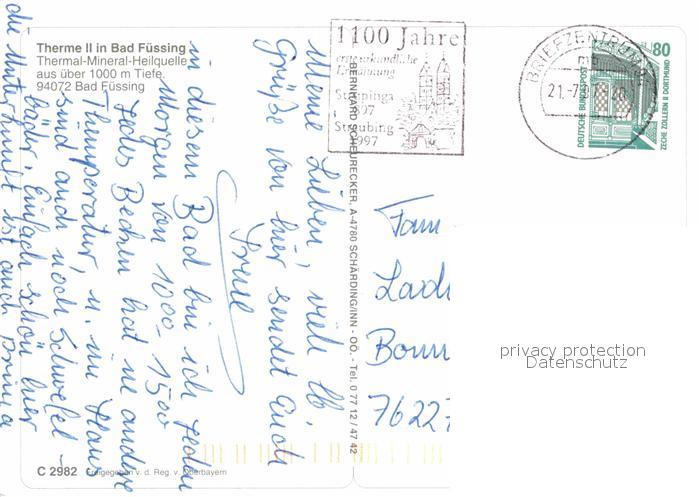 Therme II in Bad Füssing
Thermal-Mineral-Heilquelle
aus über 1000 m Tiefe.
94072 Bad Füssing
1100 Jahre
ersturkundliche
Erwähnung
Straubing
1997
BRIEFZENTRUM
21.-7.
80
DEUTSCHE BUNDESPOST
ZECHE ZOLLERN II DORTMUND
BERNHARD SCHEURECKER, A-4780 SCHÄRDING/INN - OÖ. - Tel. 0 77 12 / 47 42
Meine Lieben, viele lb.
Grüße von hier sendet Euch
in diesem Bad bin ich jeden
Morgen von 1000-1500
jedes Becken hat ne andere
Temperatur u. im Haus
sind auch noch Schwefel-
bäder, Einfach schön hier
die Unterkunft ist auch prima
Fam
Bonn
7622
privacy protection
Datenschutz
C 2982
Freigegeben v. d. Reg. v. Oberbayern